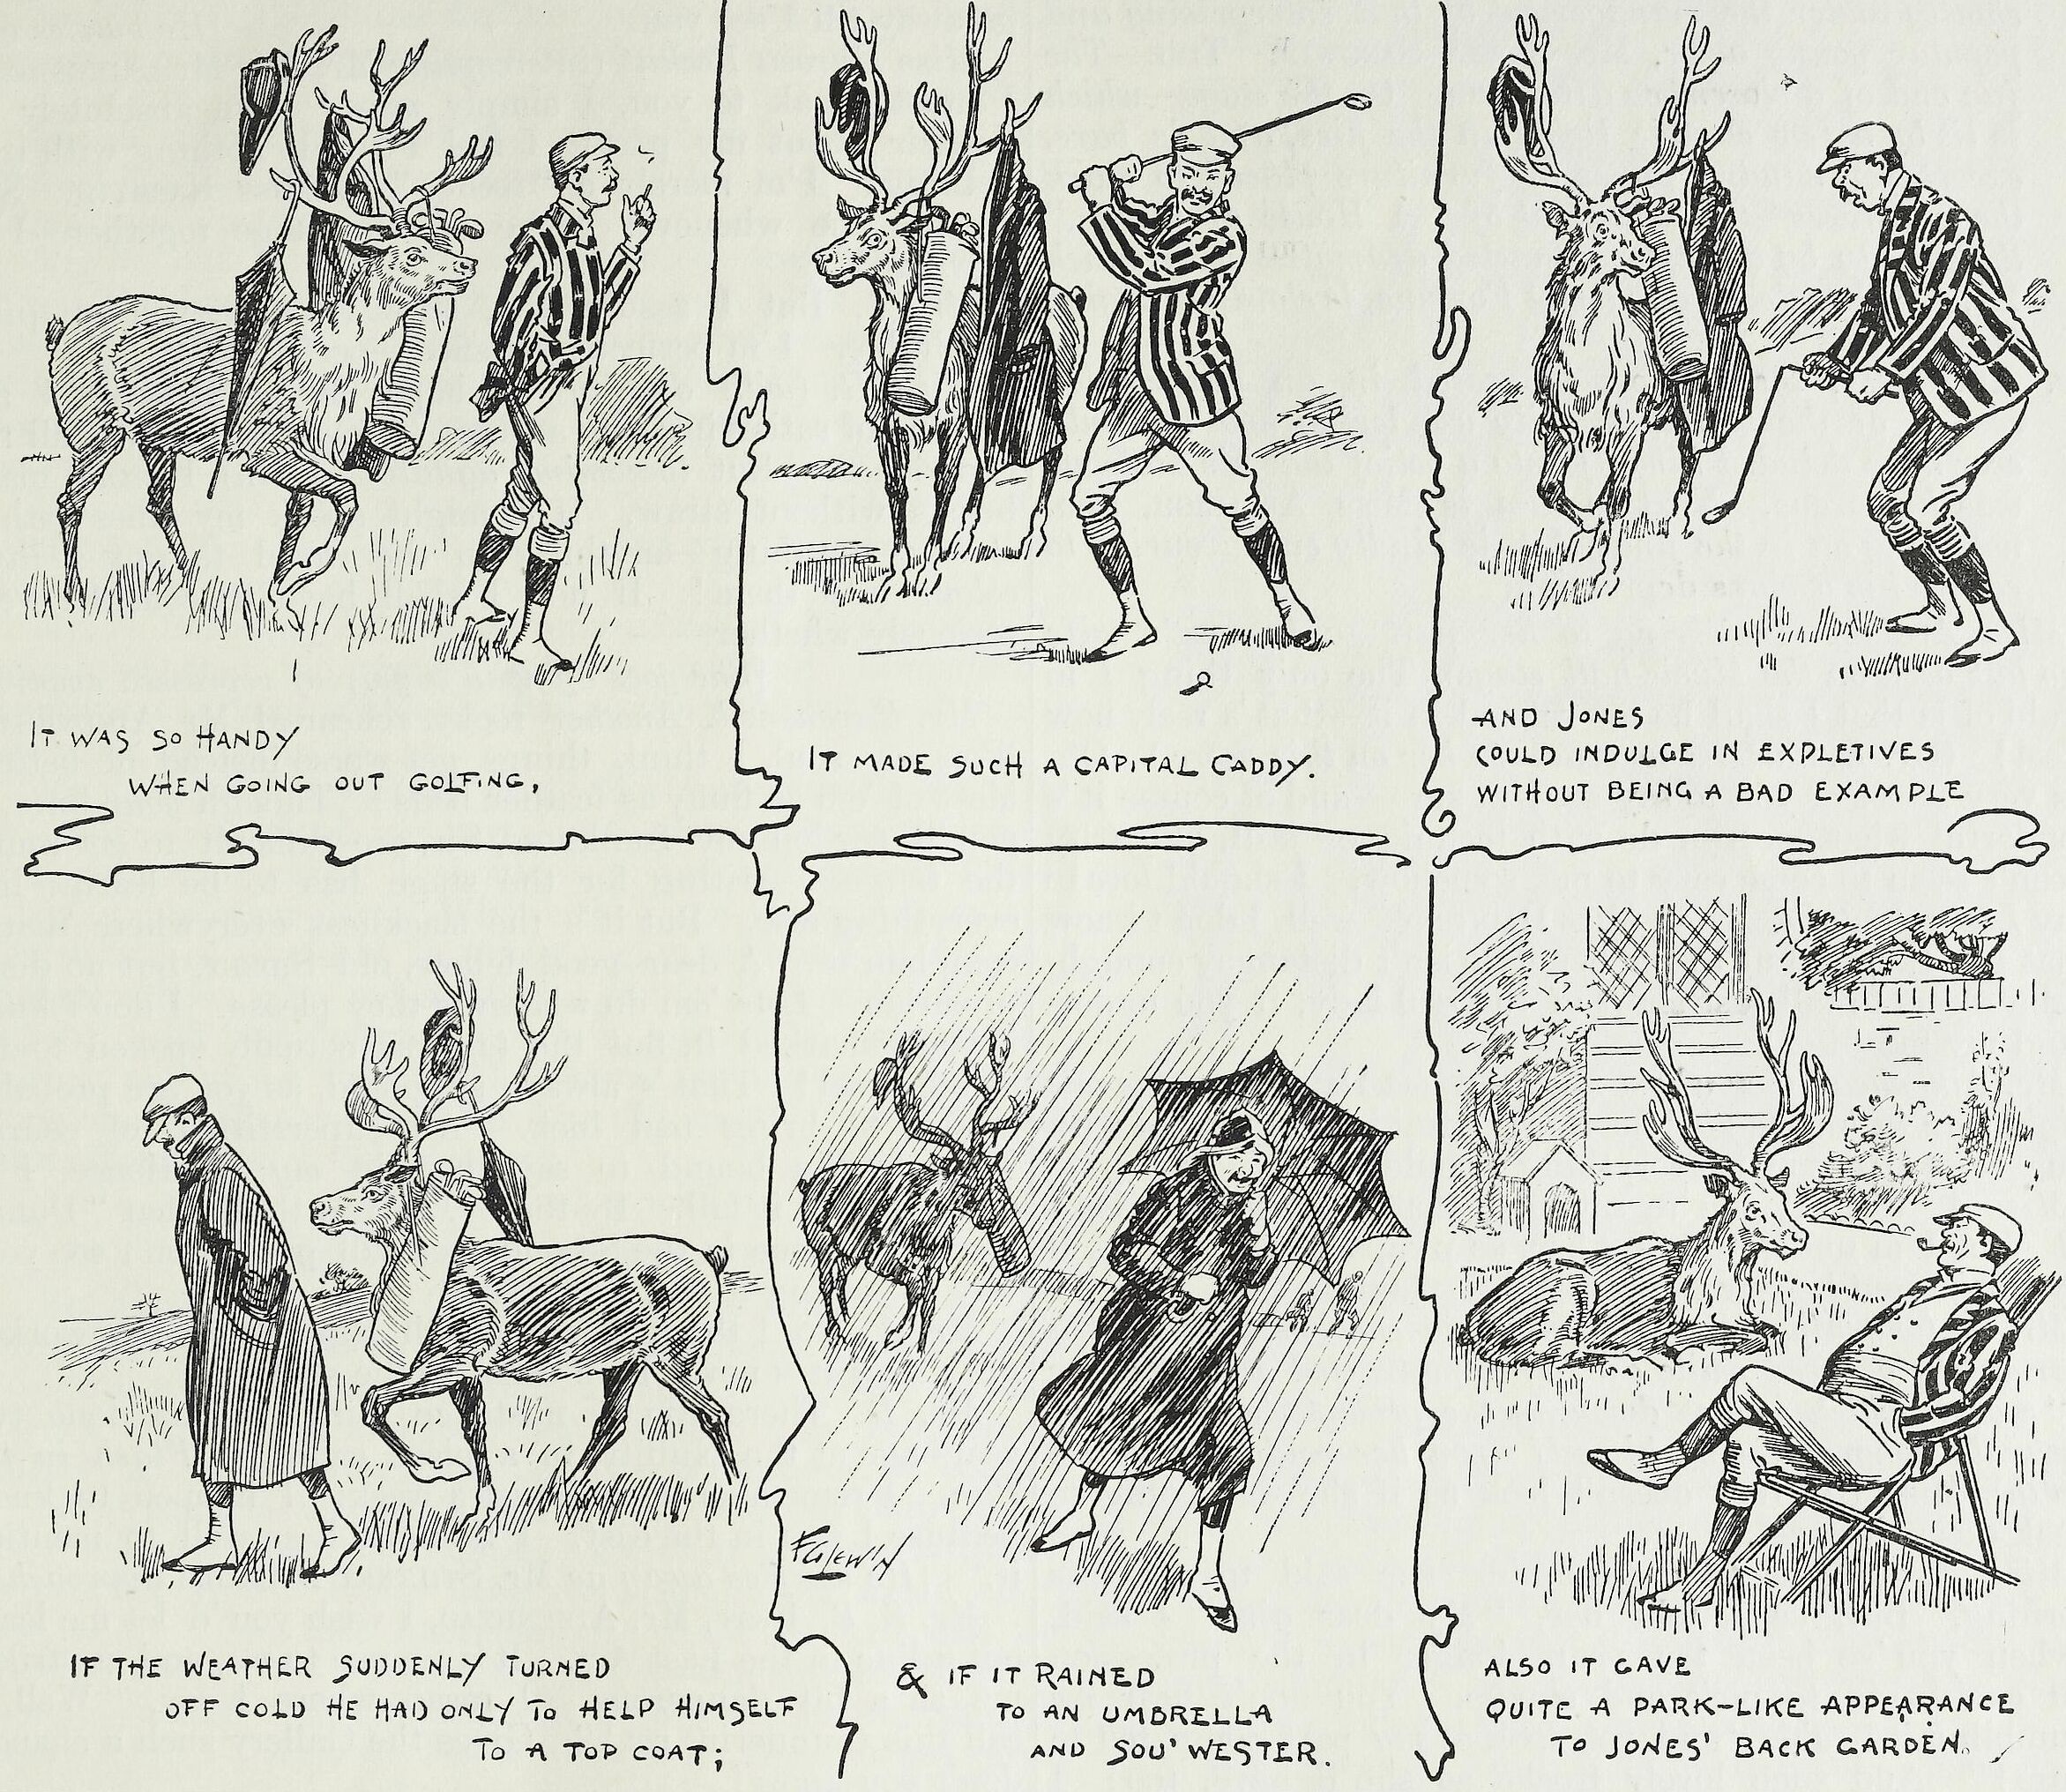 IT WAS SO HANDY
WHEN GOING OUT GOLFING,
IT MADE SUCH A CAPITAL CADDY.
AND JONES
COULD INDULGE IN EXPLETIVES
WITHOUT BEING A BAD EXAMPLE
IF THE WEATHER SUDDENLY TURNED
OFF COLD HE HAD ONLY TO HELP HIMSELF
TO A TOP COAT;
& IF IT RAINED
TO AN UMBRELLA
AND SOU' WESTER.
ALSO IT GAVE
QUITE A PARK-LIKE APPEARANCE
TO JONES' BACK GARDEN.